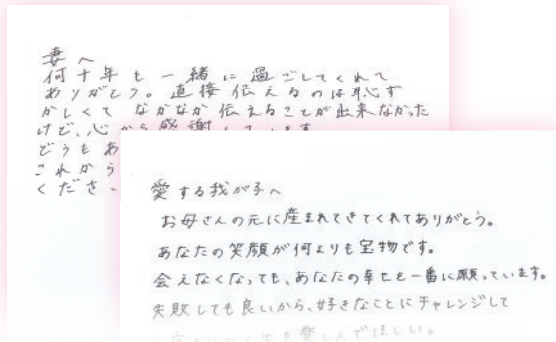 妻へ
何十年も一緒に過ごしてくれて
ありがとう。直接伝えるのは恥ず
かしくて なかなか伝えることが出来なかった
けど、心から感謝しています
どうもあ
これから
くださ
愛する我が子へ
お母さんの元に産まれてきてくれてありがとう。
あなたの笑顔が何よりも宝物です。
会えなくなっても、あなたの幸せを一番に願っています。
失敗しても良いから、好きなことにチャレンジして
楽しんでほしい。